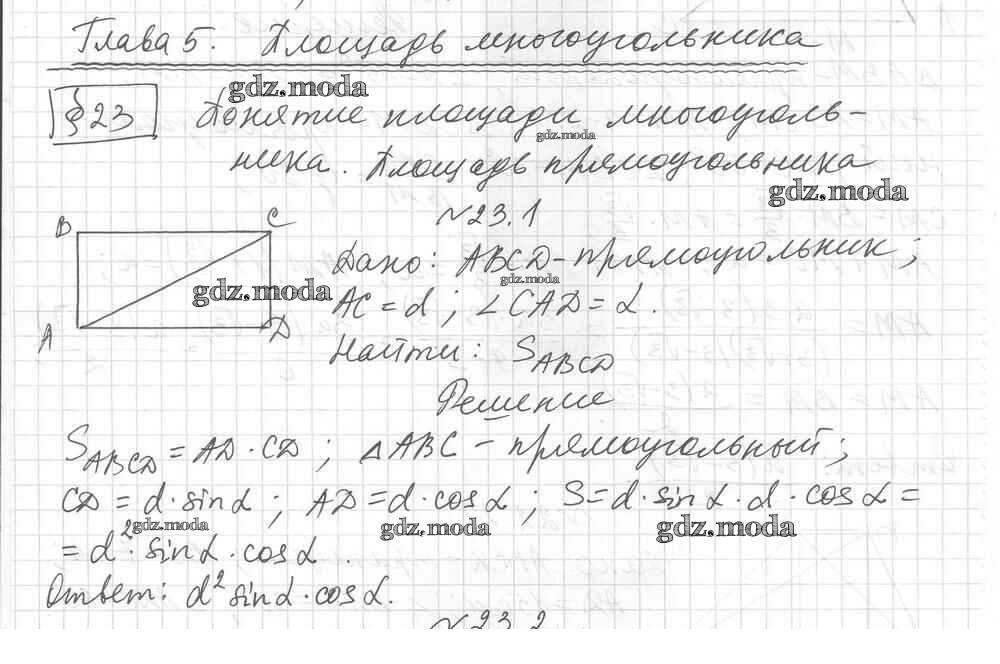 Глава 5. Площадь многоугольника
gdz.moda
§ 23 Понятие площади многоуголь-
gdz.moda
ника. Площадь прямоугольника
gdz.moda
№ 23.1
B C
A D
gdz.moda
Дано: ABCD – прямоугольник;
gdz.moda
AC = d; ∠CAD = α.
Найти: S_ABCD
Решение
S_ABCD = AD · CD; △ABC – прямоугольный;
CD = d · sin α; AD = d · cos α; S = d · sin α · d · cos α =
gdz.moda gdz.moda gdz.moda
= d² · sin α · cos α.
Ответ: d² sin α · cos α.
№ 23.2